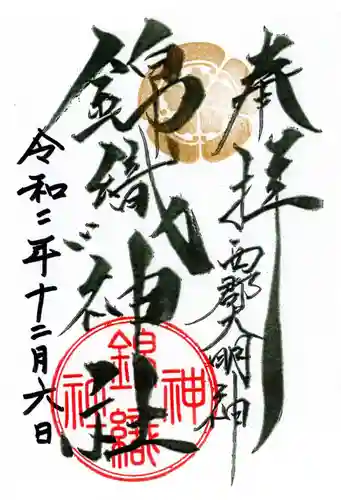 奉拝
西郡大明神
錦織神社
令和二年十二月六日
錦織神社